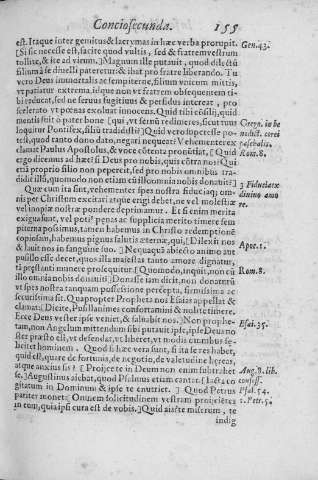 Concio secunda. 155
est. Itaque inter gemitus & lacrymas in hæc verba prorupit. Gen. 43.
[Si sic necesse est, facite quod vultis, sed & fratrem vestrum
tollite, & ite ad virum.] Magnum ille putauit, quod dilectū
filium à se diuelli pateretur: & ibat pro fratre liberando. Tu
verò Deus immortalis ac sempiterne, filium vnicum mittis,
vt patiatur extrema. isque non vt fratrem obsequentem ti-
bi reducat, sed ne seruus fugitiuus & perfidus intereat, pro
scelerato vt pœnas exoluat innocens. Quid tibi cōsilij, quid
mentis fuit ò pater bone [qui, vt seruū redimeres, sicut tuus Gregor. in be
loquitur Pontifex, filiū tradidisti?] Quid vero superesse po- nedict. cerei
test, quod tanto dono dato, negari nequeat? Vehementer ex- paschalis.
clamat Paulus Apostolus, & voce cōtenta pronūtiat, [Quid Rom. 8.
ergo dicemus ad hæc? si Deus pro nobis, quis cōtra nos? Qui
etiā proprio filio non pepercit, sed pro nobis omnibus tra-
didit illū, quomodo non etiam cū illo omnia nobis donauit?] 3 Fiduciæ ex
Quæ cum ita sint, vehementer spes nostra fiduciaq; om- diuino amo
nis per Christum excitari atque erigi debet, ne vel molestiæ re.
vel inopiæ nostræ pondere deprimatur. Et si enim merita
exigua sunt, vel poti° penè nulla, quorum merito spem sem
piternā possimus, tamen habemus in Christo redemptionē
copiosam, habemus pignus salutis æternæ, qui, [Dilexit nos Apoc. 1.
& lauit nos in sanguine suo.] Nequaquā abiecto animo aut
pusillo esse decet, quos illa maiestas tanto amore dignatur,
tā præstanti munere prosequitur. [Quomodo, inquit, non cū Rom. 8.
illo omnia nobis donauit?] Donasse iam dicit, non donaturū
vt spes nostra tanquam possessione percepta, firmissima ac
securissima sit. Quapropter Propheta nos Esaias appellat &
clamat: [Dicite, Pusillanimes confortamini & nolite timere.
Ecce Deus vester ipse veniet, & saluabit nos.] Non prophe- Esai. 35.
tam, non Angelum mittendum sibi putauit ipse, ipse Deus no
ster præsto est, vt defendat, vt liberet, vt modis omnibus fe-
licitet hominem. Quod si hæc vera sunt, si ita se res habet,
quid est, quare de fortunis, de negotio, de valetudine lugeas,
atque anxius sis? [Projicere in Deum non enim subtrahet Aug. 8. lib.
se,] Augustinus aiebat, quod Psalmus etiam cantat. [Iacta co confess.
gitatum in Dominum & ipse te enutriet.] Quod Petrus Psal. 54.
pariter monet: Omnem solicitudinem vestram projicietes 1. Petr. 5.
in eum, quia ipsi cura est de vobis.] Quid anxie miserum, te
indig